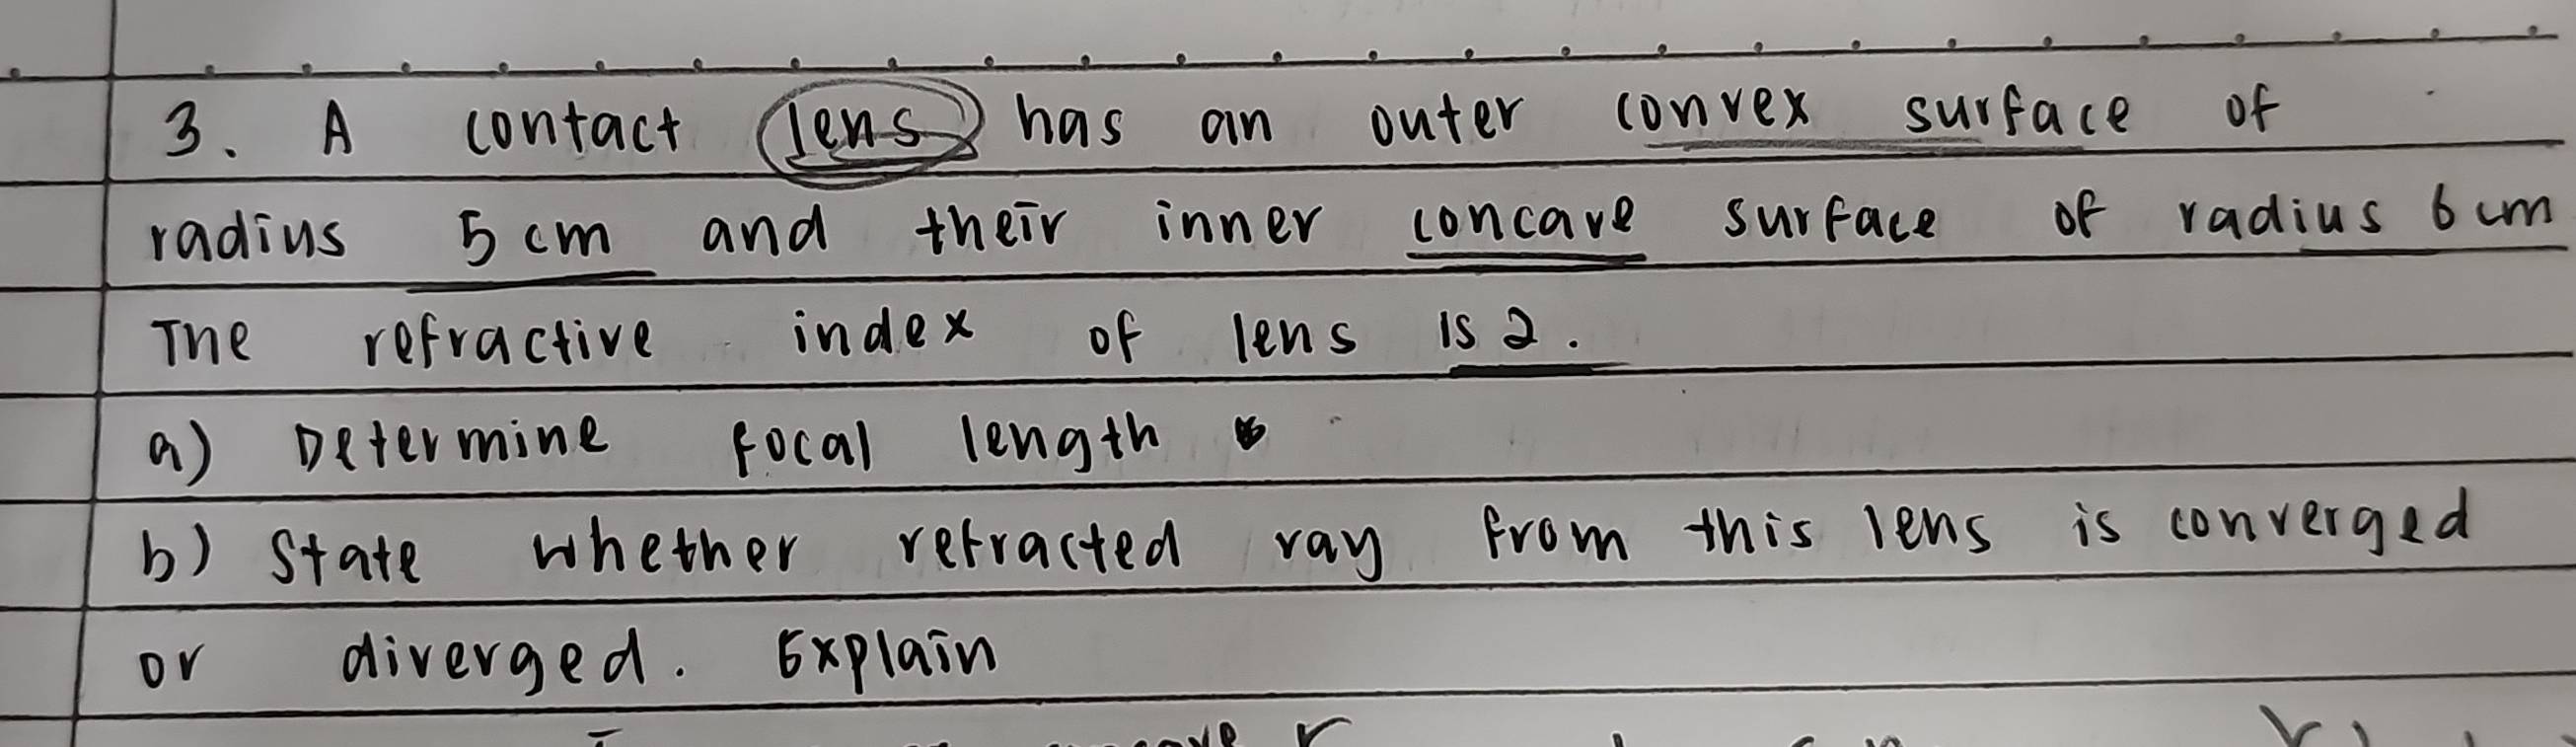 3. A contact lens has an outer convex surface of
radius 5 cm and their inner concave surface of radius 6 cm
The refractive index of lens is 2.
a) Determine focal length
b) State whether refracted ray from this lens is converged
or diverged. Explain